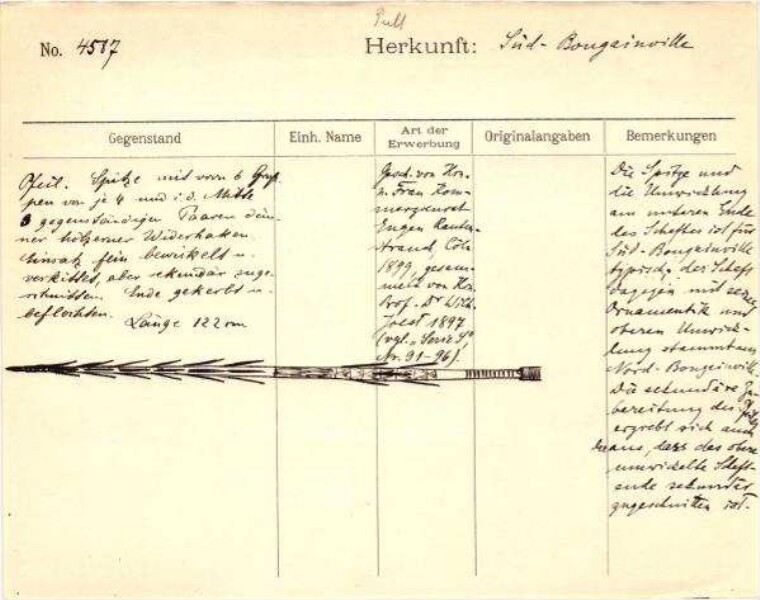 No. 4587
Herkunft: Süd-Bougainville
Gegenstand
Einh. Name
Art der Erwerbung
Originalangaben
Bemerkungen
Pfeil. Spitze mit vorn 6 Grup-
pen von je 4 und i. d. Mitte
3 gegenständigen Paaren dün-
ner hölzerner Widerhaken.
Einsatz fein bewickelt u.
verkittet, aber sekundär zuge-
schnitten. Ende gekerbt u.
beflochten.
Länge 122 cm
Gesch. von Hrn.
u. Frau Kom-
merzienrat
Eugen Rauten-
strauch, Cöln
1899, gesam-
melt von Hrn.
Prof. Dr Wilh.
Joest 1897
(vgl. "Serie S",
Nr. 91-96).
Die Spitze und
die Umwicklung
am unteren Ende
des Schaftes ist für
Süd-Bougainville
typisch, der Schaft
dagegen mit seiner
Ornamentik und
oberen Umwick-
lung stammt aus
Nord-Bougainville.
Die sekundäre Zu-
bereitung des Pfeils
ergiebt sich auch
daraus, dass das obere
umwickelte Schaft-
ende sekundär
zugeschnitten ist.